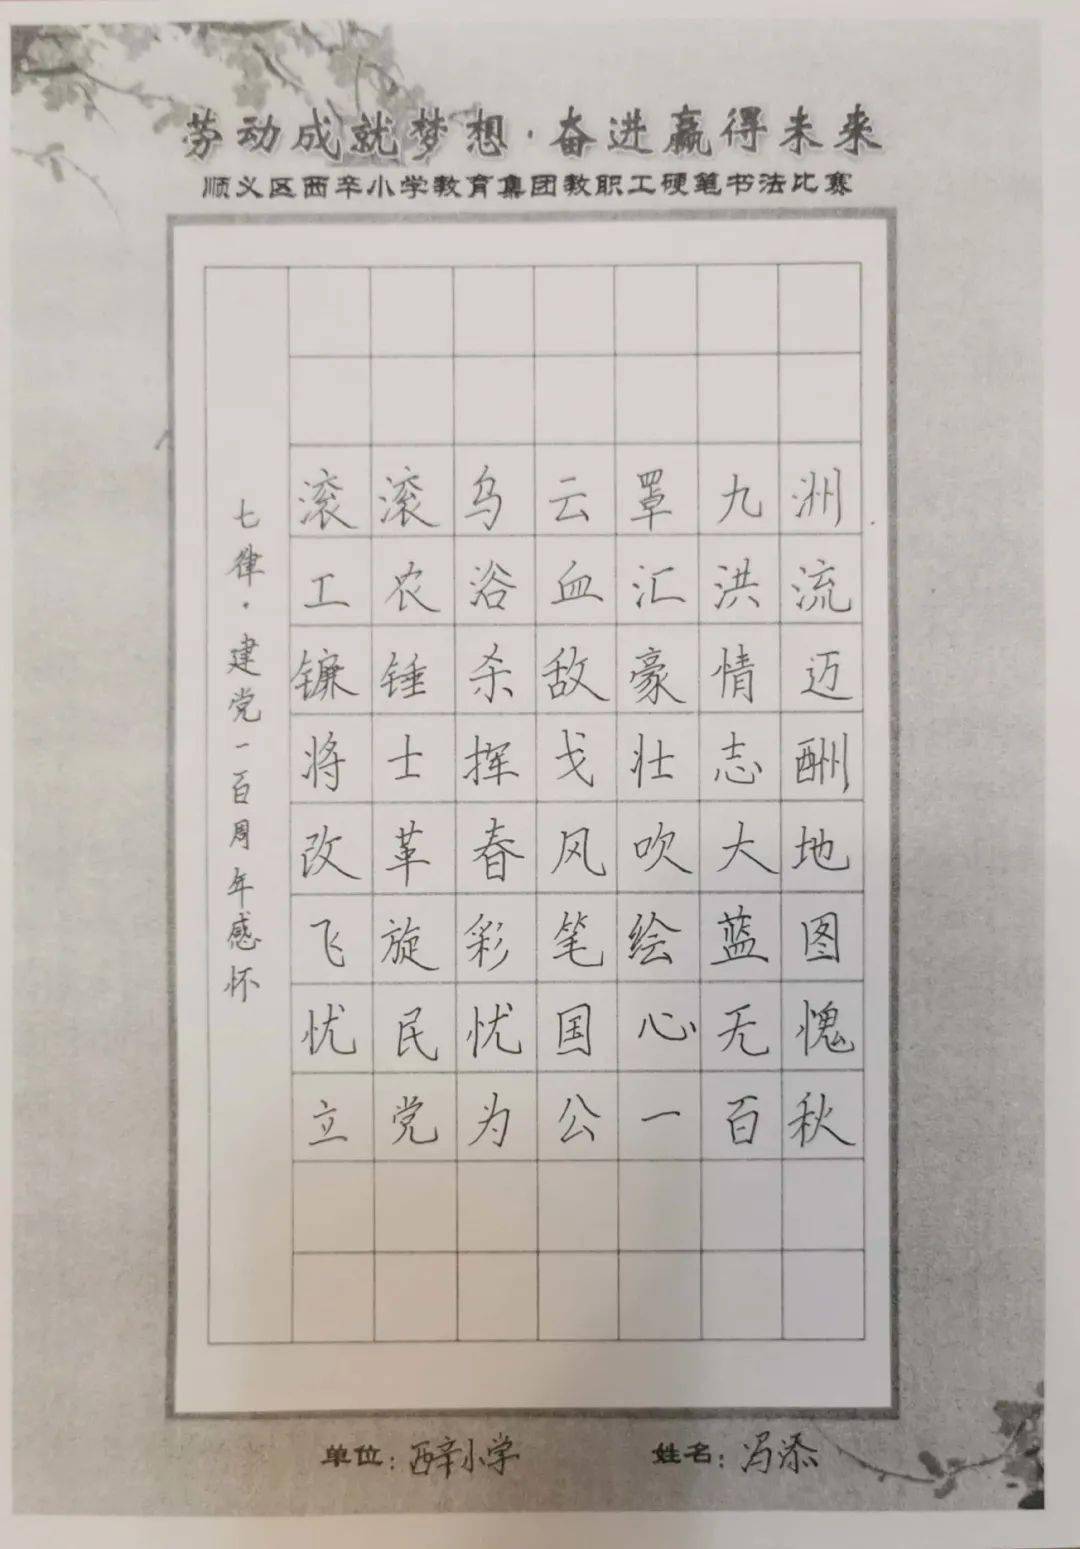 劳动成就梦想·奋进赢得未来
顺义区西辛小学教育集团教职工硬笔书法比赛
七律·建党一百周年感怀
滚滚乌云罩九洲
工农浴血汇洪流
镰锤杀敌豪情迈
将士挥戈壮志酬
改革春风吹大地
飞旋彩笔绘蓝图
忧民忧国心无愧
立党为公一百秋
单位:西辛小学
姓名:冯添